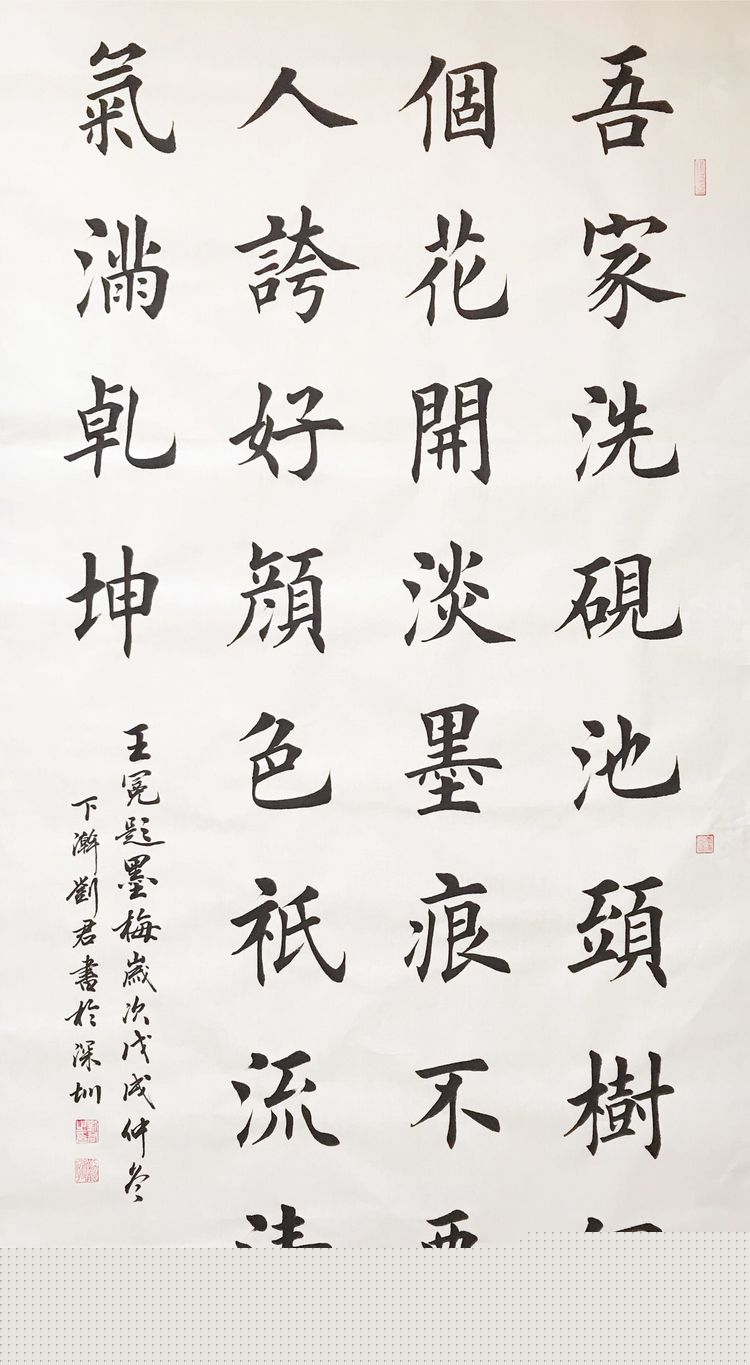 吾家洗硯池頭樹
個花開淡墨痕不
人誇好顔色祇流
氣滿乹坤
王冕題墨梅歲次戊戌仲冬
下瀚劉君書於深圳